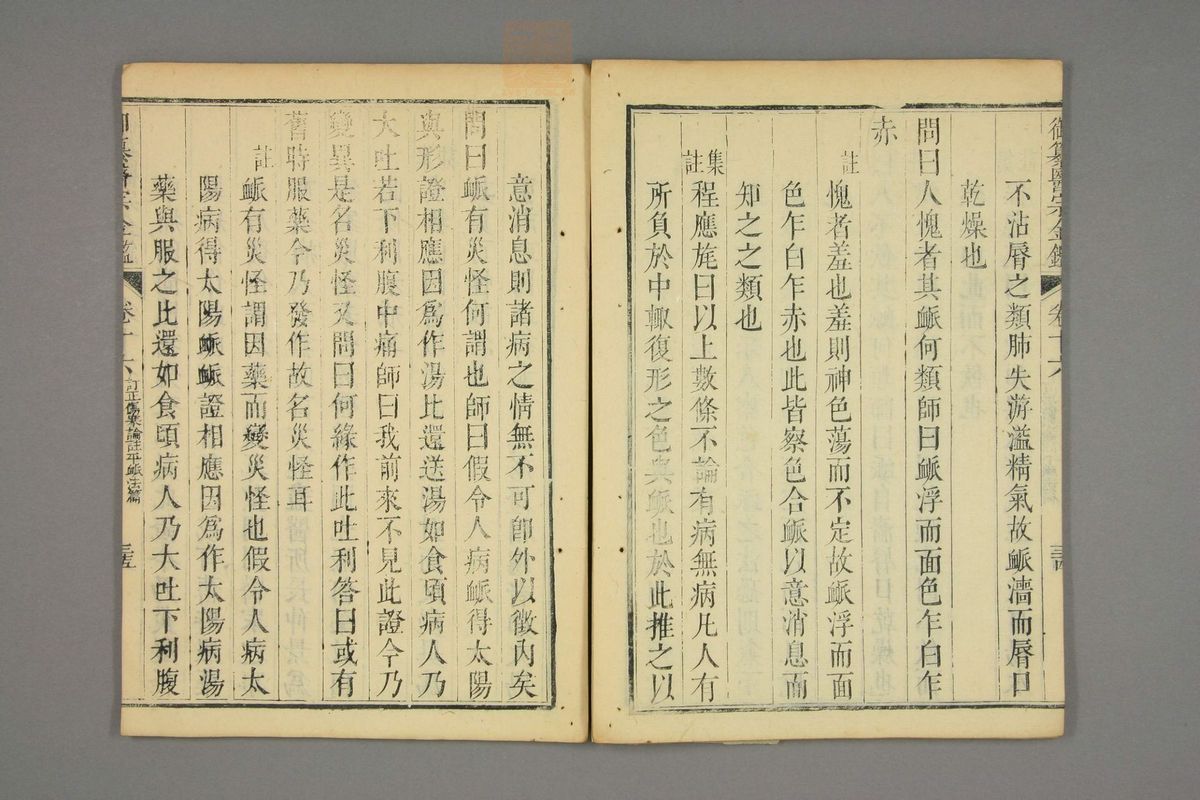 御纂醫宗金鑑 卷十六 三西
不沾脣之類肺失游溢精氣故䘑濇而脣口
乾燥也
問曰人愧者其䘑何類師曰䘑浮而面色乍白乍
赤
註 愧者羞也羞則神色蕩而不定故䘑浮而面
色乍白乍赤也此皆察色合䘑以意消息而
知之之類也
集註 程應旄曰以上數條不論有病無病凡人有
所負於中輒復形之色與䘑也於此推之以
意消息則諸病之情無不可即外以徵內矣
問曰䘑有災怪何謂也師曰假令人病䘑得太陽
與形證相應因爲作湯比還送湯如食頃病人乃
大吐若下利腹中痛師曰我前來不見此證今乃
變異是名災怪又問曰何緣作此吐利答曰或有
舊時服藥今乃發作故名災怪耳
註 䘑有災怪謂因藥而變災怪也假令人病太
陽病得太陽䘑䘑證相應因爲作太陽病湯
藥與服之比還如食頃病人乃大吐下利腹
御纂醫宗金鑑 卷十六 訂正傷寒論註平䘑法篇 三五